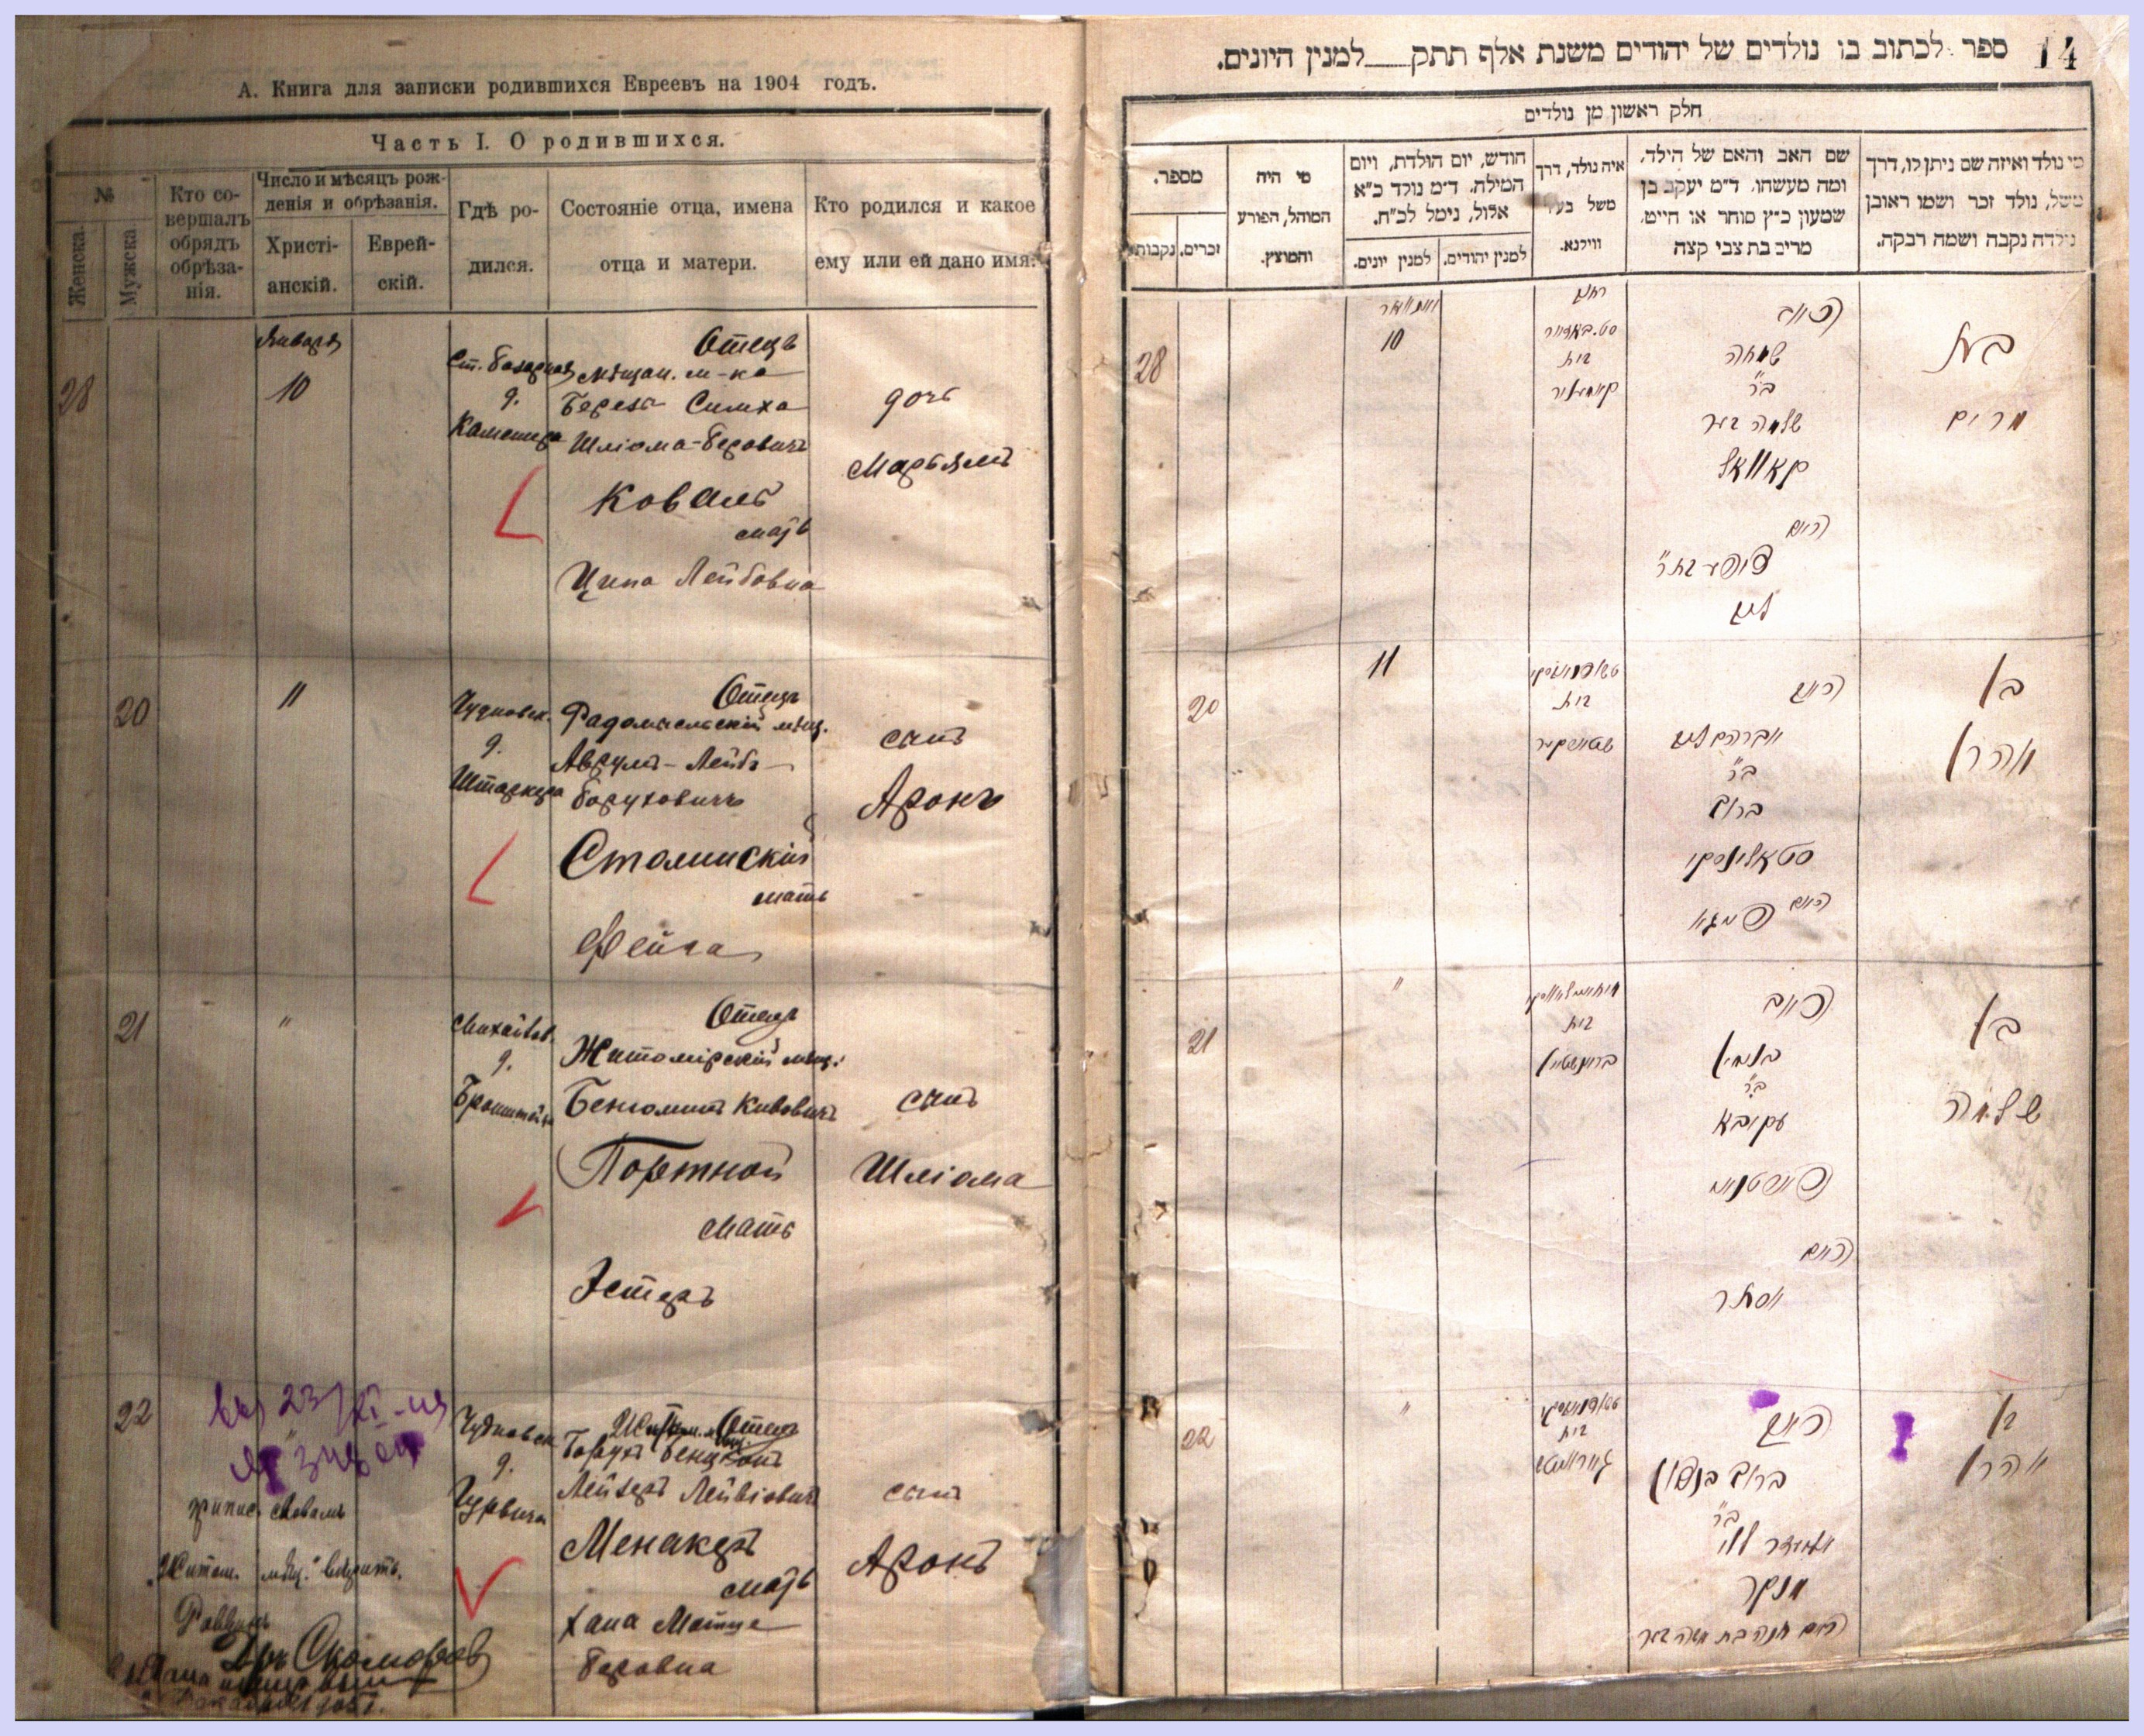 А. Книга для записки родившихся Евреевъ на 1904 годъ.
Часть I. О родившихся.
№
Женска.
Мужска.
Кто со-
вершалъ
обрядъ
обрѣза-
нія.
Число и мѣсяцъ рож-
денія и обрѣзанія.
Христі-
анскій.
Еврей-
скій.
Гдѣ ро-
дился.
Состояніе отца, имена
отца и матери.
Кто родился и какое
ему или ей дано имя.
28
Января
10
Ст. базарная
д.
Отецъ
Мѣщан. м-ка
Береза Симха
Шліома-Беровичъ
Коваль
мать
Ципа Лейбовна
дочь
Марьямъ
20
11
Чудновск.
д.
Отецъ
Радомысльскій мѣщ.
Аврумъ-Лейбъ
Боруховичъ
Столинскій
мать
Фейга
сынъ
Аронъ
21
"
Михайлов.
д.
Бронштейна
Отецъ
Житомірскій мѣщ.
Беньоминъ Кивовичъ
Портной
мать
Эстеръ
сынъ
Шліома
22
Чудновск.
д.
Гурвича
Житом. мѣщ. Отецъ
Борухъ Бенціонъ
Лейзеръ Лейвіовичъ
Менакеръ
мать
Хана Матше
Беровна
сынъ
Аронъ
"Житом. мѣщ." вѣрить.
Раввинъ
Скоморов
14
ספר לכתוב בו נולדים של יהודים משנת אלף תתק__למנין היונים.
חלק ראשון מן נולדים
מי נולד ואיזה שם ניתן לו, דרך
משל, נולד זכר ושמו ראובן
נולדה נקבה ושמה רבקה.
שם האב והאם של הילד,
ומה מעשהו, ד״מ יעקב בן
שמעון כ״ץ סוחר או חייט,
מריב בת צבי קצה
איה נולד, דרך
משל בעיר
ווילנא.
חודש, יום הולדת, ויום
המילה, ד״מ נולד כ״א
אלול, נימל לכ״ח.
למנין יהודים.
למנין יונים.
מי היה
המוהל, הפורע
והמוצץ.
מספר.
זכרים.
נקבות
28
10
בית
האב
שמחה
ב״ר
שלמה בער
קאוואל
האם
ציפע בת ר׳
לייב
בת
מרים
20
11
בית
האב
אברהם לייב
ב״ר
ברוך
סטאלינסקי
האם פייגא
בן
אהרן
21
"
בית
ברונשטיין
האב
בנימין
ב״ר
עקיבא
פורטנוי
האם
אסתר
בן
שלמה
22
"
בית
האב
ברוך בנציון
ב״ר
אליעזר לוי
מנקר
האם חנה בת משה בער
בן
אהרן